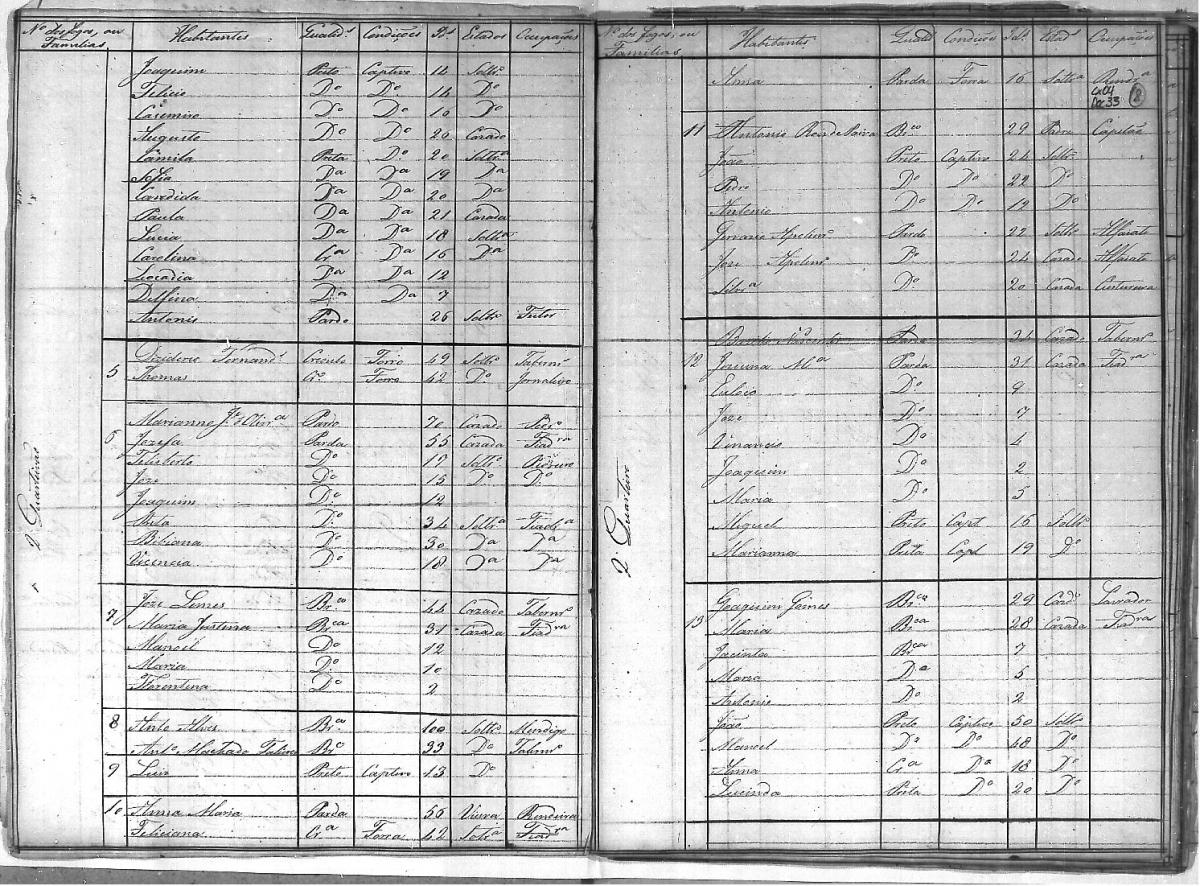 Nº dos fogos, ou Familias Habitantes Qualid.ˢ Condições Id.ˢ Estados Occupações
Joaquim Preto Captivo 14 Soltº
Felicio Dº Dº 14 Dº
Casemiro Dº Dº 16 Dº
Augusto Dº Dº 20 Cazado
Camila Preta Dº 20 Soltª
Sofia Dª Dª 19 Dª
Candida Dª Dª 20 Dª
Paula Dª Dª 21 Cazada
Lucia Dª Dª 18 Soltª
Carolina Crª Dª 16 Dª
Leocadia Dª Dª 12
Delfina Dª Dª 7
Antonio Pardo 26 Soltº Feitor
5 Diziderio Fernand.ˢ Creoulo Forro 49 Soltº Tabernº
Thomas Crº Forro 42 Dº Jornaleiro
2º Quarteirão
6 Marianno Jº Olivª Pardo 70 Cazado
Jozefa Parda 55 Cazada Fiadrª
Felisberto Dº 17 Soltº
Joze Dº 15 Dº Dº
Joaquim Dº 12
Rita Dº 34 Soltª Fiadª
Bibiana Dº 30 Dª Dª
Vicencia Dº 18 Dª Dª
7 Joze Lemes Brco 44 Cazado Tabernº
Maria Justina Brca 31 Cazada Fiadrª
Manoel Dº 12
Maria Dº 10
Florentina Dº 2
8 Anto Alves Brco 100 Soltº Mendigo
Antº Machado Brco 33 Dº Tabernº
9 Luis Preto Captivo 13 Dº
10 Anna Maria Parda 56 Viuva Rendeira
Feliciana Crª Forra 42 Soltª Fiadrª
Nº dos fogos, ou Familias Habitantes Qualid Condições Id.ˢ Estad.ˢ Occupações
Anna Parda Forra 16 Soltª Rendrª
Cx04
Doc33
8
11 Antonio Roza de Paiva Brco 29 Capitão
João Preto Captivo 24 Soltº
Pedro Dº Dº 22 Dº
Antonio Dº Dº 19 Dº
Apolinº Pardo 22 Soltº Alfaiate
Joze Apolinº Dº 24 Cazado Alfaiate
Dº 20 Cazada Custureira
2º Quarteirão
12 34 Cazado Tabernº
Mª Parda 31 Cazada Fiadrª
Dº 9
Joze Dº 7
Vinancio Dº 4
Joaquim Dº 2
Maria Dº 5
Miguel Preto Capt 16 Soltº
Marianna Preta Capt 19 Dº
13 Joaquim Gomes Brco 29 Cazdº Lavrador
Maria Brca 28 Cazada Fiadrª
Jacinta Brca 7
Maria Dª 5
Antonio Dº 2
João Preto Captivo 50 Soltº
Manoel Dº Dº 48 Dº
Anna Crª Dª 18 Dº
Lucinda Preta Dº 20 Dº